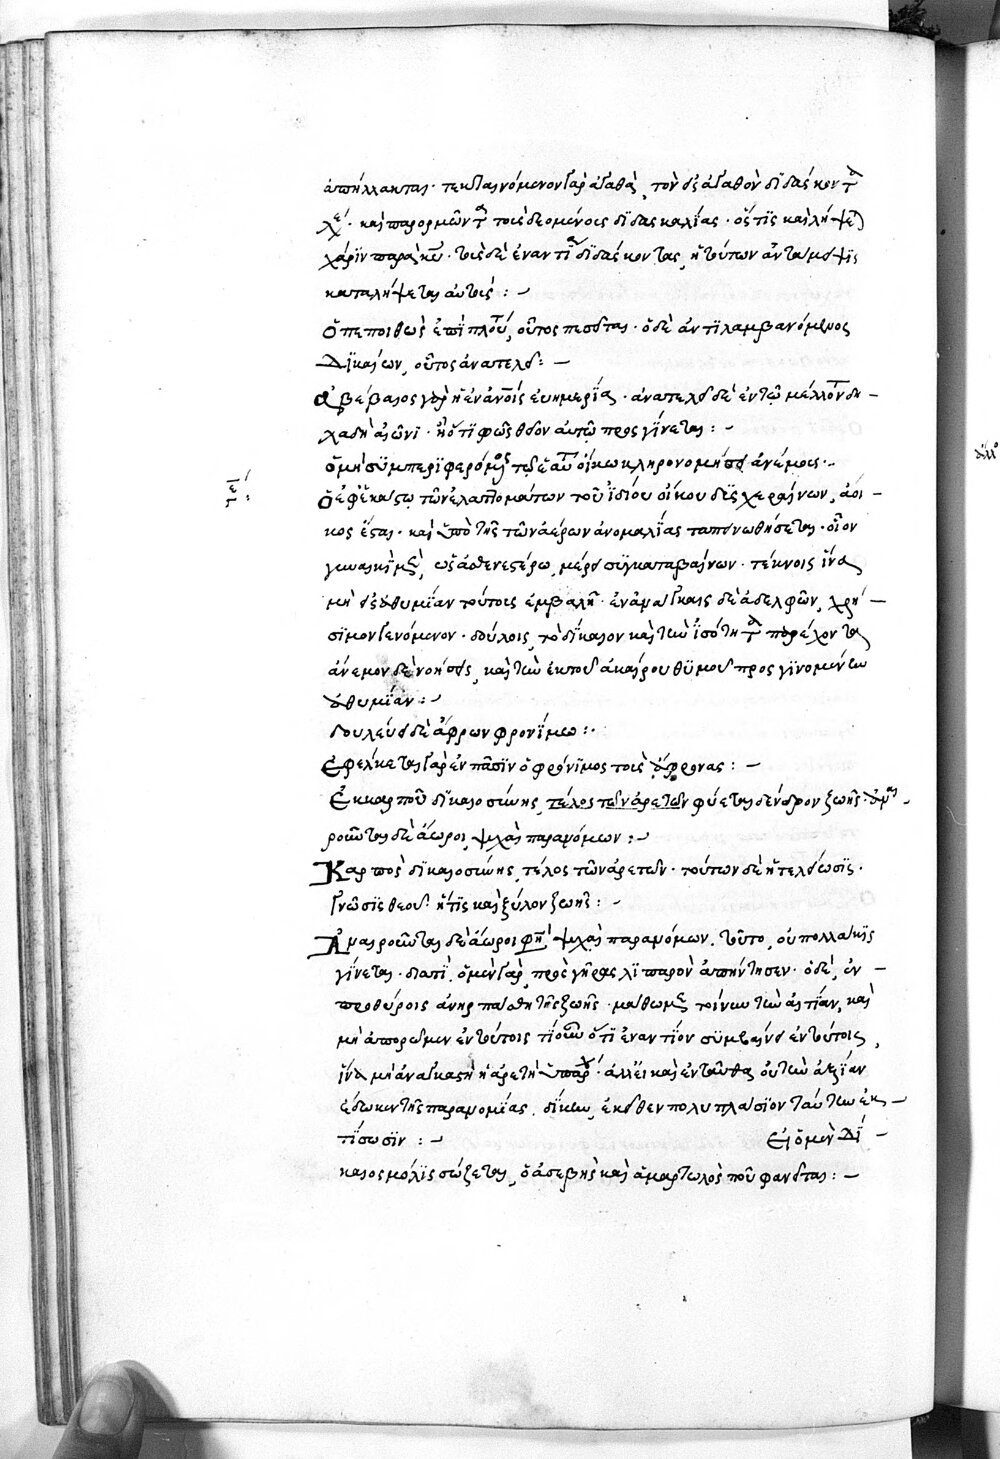 ἀπήλλακται· τεκταινόμενον γὰρ ἀγαθὰ, τὸν δὲ ἀγαθὸν διδάσκοντα
καὶ παρορμῶντα τοῖς δεομένοις διδασκαλίας· ὅς τις καὶ λήψεται
χάριν παρὰ κυ· τοὺς δὲ ἐναντία διδάσκοντας, ἡ τούτων ἀντάμειψις
καταλήψεται αὐτούς: –
Ὁ πεποιθὼς ἐπὶ πλούτῳ, οὗτος πεσεῖται· ὁ δὲ ἀντιλαμβανόμενος
δικαίων, οὗτος ἀνατελεῖ: –
ἀβέβαιος γὰρ ἡ ἐν ἀνοις εὐημερία· ἀνατελεῖ δὲ ἐν τῷ μέλλοντι δη –
λαδὴ αἰῶνι· ἢ ὅτι φῶς θεῖον αὐτῷ προσγίνεται: –
ὁ μὴ συμπεριφερόμενος τῷ ἑαυτοῦ οἴκῳ κληρονομήσει ἀνέμους·
ὁ ἐφ' ἑκάστῳ τῶν ἐλαττωμάτων τοῦ ἰδίου οἴκου δυσχεραίνων, ἄοι –
κος ἔσται· καὶ ὑπὸ τῆς τῶν ἀέρων ἀνομαλίας ταπεινωθήσεται· οἷον
γυναικὶ μὲν, ὡς ἀσθενεστέρῳ μέρει συγκαταβαίνων· τέκνοις ἵνα
μὴ εἰς ἀθυμίαν τούτοις ἐμβαλῇ· ἐν ἀνάγκαις δὲ ἀδελφῶν, χρή –
σιμον γενόμενον· δούλοις, τὸ δίκαιον καὶ τὴν ἰσότητα παρέχοντα
ἄνεμον δὲ νοήσεις, καὶ τὴν ἐκ τοῦ ἀκαίρου θυμοῦ προσγινομένην
ἀθυμίαν: –
δουλεύσει δὲ ἄφρων φρονίμῳ:·
Ἐφέλκεται γὰρ ἐν πᾶσιν ὁ φρόνιμος τοὺς ἄφρονας: –
Ἐκ καρποῦ δικαιοσύνης, τέλος τῶν ἀρετῶν φύεται δένδρον ζωῆς· ἀφαι –
ροῦνται δὲ ἄωροι, ψυχαὶ παρανόμων: –
Καρπὸς δικαιοσύνης, τέλος τῶν ἀρετῶν· τούτων δὲ ἡ τελείωσις·
γνῶσις θεοῦ· ἥτις καὶ ξύλον ζωῆς: –
Ἀφαιροῦνται δὲ ἄωροι φησὶ ψυχαὶ παρανόμων. τοῦτο, οὐ πολλάκις
γίνεται· διατί, ὁ μὲν γὰρ, πρὸς γῆρας λιπαρὸν ἀπήντησεν· ὁ δὲ, ἐν –
προθύροις ἀνηρπάσθη τῆς ζωῆς· μάθωμεν τοίνυν τὴν αἰτίαν, καὶ
μὴ ἀπορῶμεν ἐν τούτοις τί οὖν ὅτι ἐναντίον συμβαίνει ἐν τούτοις,
ἵνα μὴ ἀναγκαστὴ ἡ ἀρετὴ ὑπάρχῃ· ἀλλ' εἰ καὶ ἐνταῦθα οὐ τὴν ἀξίαν
ἔδωκεν τῆς παρανομίας δίκην, ἐκεῖθεν πολυπλάσιον ταύτην ἐκ –
τίσωσιν: – Εἰ ὁ μὲν δί –
καιος μόλις σώζεται, ὁ ἀσεβὴς καὶ ἁμαρτωλὸς ποῦ φανεῖται: –